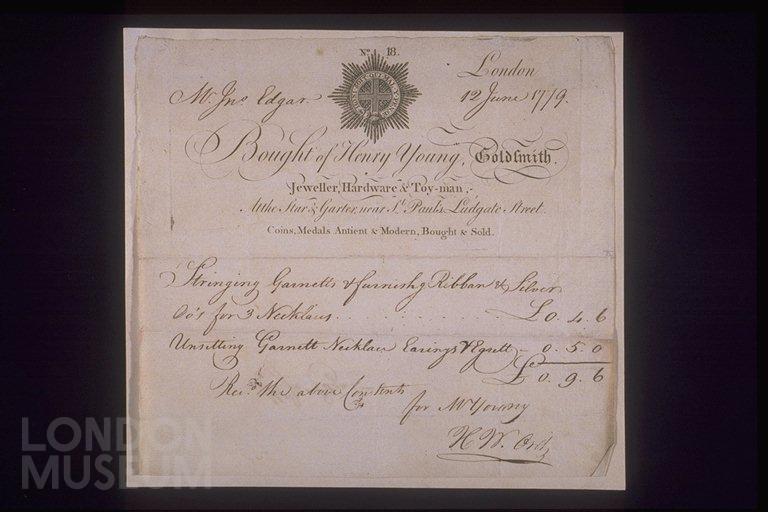 No. 18.
HONI SOIT QUI MAL Y PENSE
London
Mr. Jno Edgar.
12 June 1779.
Bought of Henry Young, Goldsmith.
Jeweller, Hardware & Toy-man,
At the Star & Garter, near St. Paul's, Ludgate Street.
Coins, Medals Antient & Modern, Bought & Sold.
Stringing Garnetts & furnishg Ribban & Silver
for 3 Necklaus £0. 4. 6
Unsetting Garnett Necklace Earings & Egrett - 0. 5. 0
£0. 9. 6
Recd. the above Contents
for Mr Young
H W.
LONDON
MUSEUM